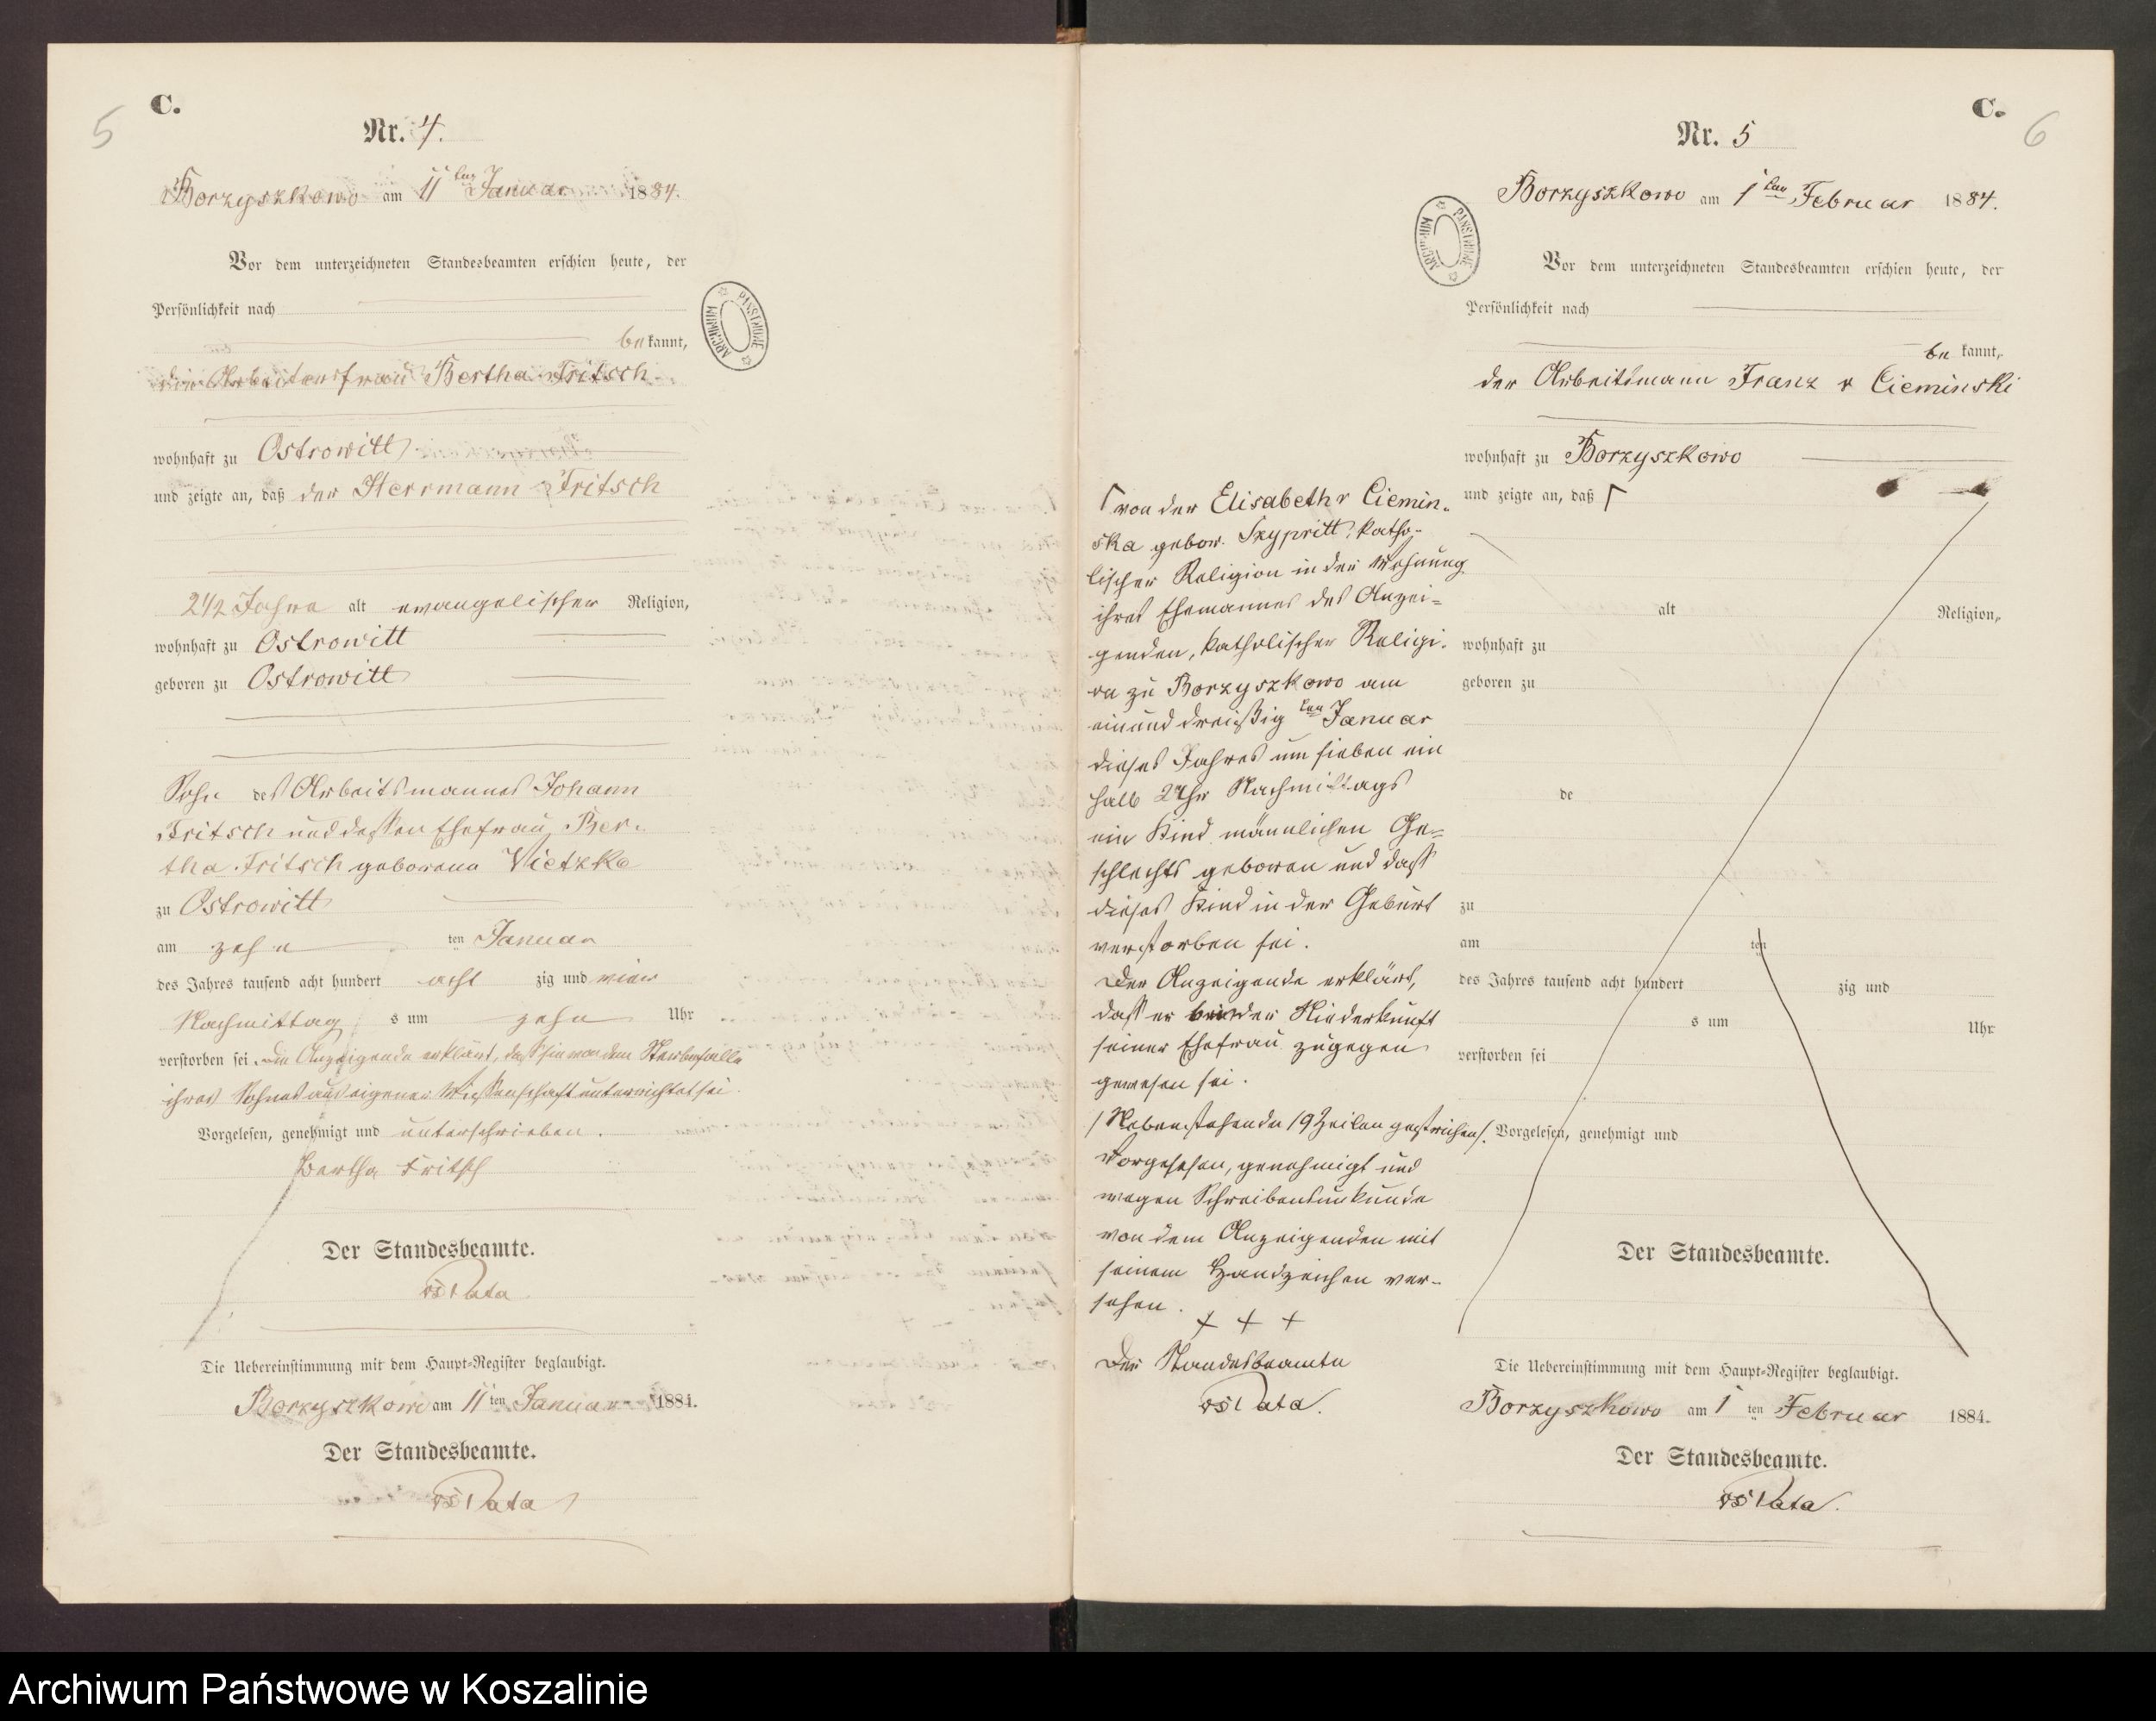 5
C.
Nr. 4.
Borzyszkowo am 11ten Januar 1884.
Vor dem unterzeichneten Standesbeamten erschien heute, der
Persönlichkeit nach
bekannt,
die Arbeiterfrau Bertha Fritsch
wohnhaft zu Ostrowitt
und zeigte an, daß der Herrmann Fritsch
2 1/2 Jahre alt evangelischer Religion,
wohnhaft zu Ostrowitt
geboren zu Ostrowitt
Sohn des Arbeitsmannes Johann
Fritsch und dessen Ehefrau Ber-
tha Fritsch geborene Vietzke
zu Ostrowitt
am zehn ten Januar
des Jahres tausend acht hundert acht zig und vier
Nachmittag s um zehn Uhr
verstorben sei. Die Anzeigende erklärt, daß sie von dem Sterbefalle
ihres Sohnes aus eigener Wissenschaft unterrichtet sei.
Vorgelesen, genehmigt und unterschrieben.
Bertha Fritsch
Der Standesbeamte.
Pata
Die Uebereinstimmung mit dem Haupt-Register beglaubigt.
Borzyszkowo am 11ten Januar 1884.
Der Standesbeamte.
Pata
ARCHIWUM PAŃSTWOWE
C.
6
Nr. 5
Borzyszkowo am 1ten Februar 1884.
ARCHIWUM PAŃSTWOWE
Vor dem unterzeichneten Standesbeamten erschien heute, der
Persönlichkeit nach
be kannt,
der Arbeitsmann Franz v Cieminski
wohnhaft zu Borzyszkowo
und zeigte an, daß Γ
Γ von der Elisabeth v Ciemin-
ska gebor. Skypritt, katho-
lischer Religion in der Wohnung
ihres Ehemannes des Anzei-
genden, katholischer Religi-
on zu Borzyszkowo am
einunddreißigten Januar
dieses Jahres um sieben ein
halb Uhr Nachmittags
ein Kind männlichen Ge-
schlechts geboren und daß
dieses Kind in der Geburt
verstorben sei.
Der Anzeigende erklärt,
daß er bei der Niederkunft
seiner Ehefrau zugegen
gewesen sei.
/Nebenstehende 19 Zeilen gestrichen/.
Vorgelesen, genehmigt und
wegen Schreibensunkunde
von dem Anzeigenden mit
seinem Handzeichen ver-
sehen.
+ + +
Der Standesbeamte
Pata.
alt Religion,
wohnhaft zu
geboren zu
de
zu
am ten
des Jahres tausend acht hundert zig und
s um Uhr
verstorben sei
Vorgelesen, genehmigt und
Der Standesbeamte.
Die Uebereinstimmung mit dem Haupt-Register beglaubigt.
Borzyszkowo am 1 ten Februar 1884.
Der Standesbeamte.
Pata.
Archiwum Państwowe w Koszalinie